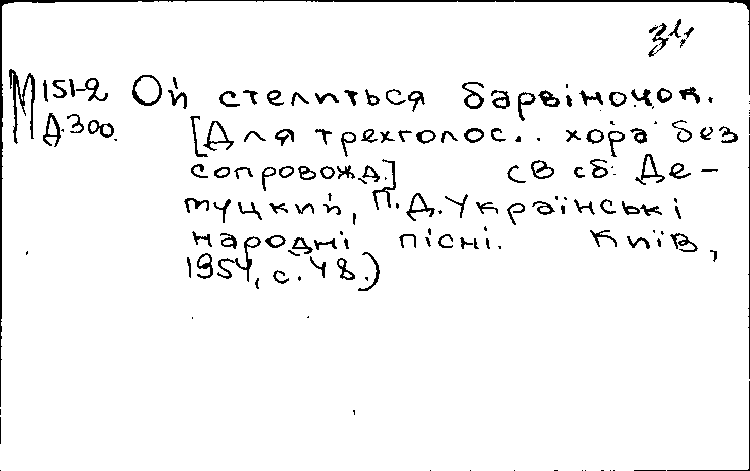 34
М 151-2 Ой стелиться барвіночок.
Д.300. [Для трехголос.. хора без
сопровожд.] (В сб: Де-
муцкий, П.Д. Українські
народні пісні. Київ,
1954, с. 48.)